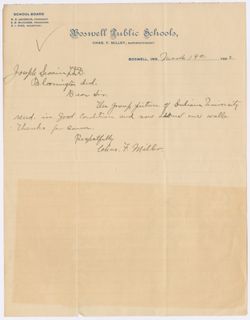 SCHOOL BOARD
Boswell Public Schools,
CHAS. F. MILLER, SUPERINTENDENT.
BOSWELL, IND. March 190
Joseph Swain
Bloomington Ind.
Dear Sir:
The group picture of Indiana University
recd. in good condition and now our walls.
Thanks for same.
Respectfully
Chas. F. Miller